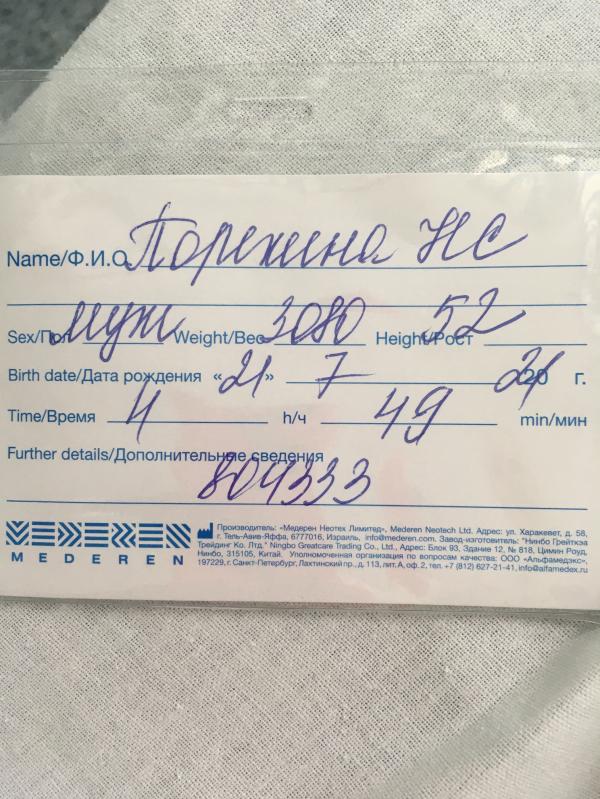 Name/Ф.И.О. Порехина НС
Sex/Пол муж Weight/Вес 3080 Height/Рост 52
Birth date/Дата рождения «21» 7 2021 г.
Time/Время 4 h/ч 49 min/мин
Further details/Дополнительные сведения
804333
MEDEREN
Производитель: «Медерен Неотех Лимитед», Mederen Neotech Ltd. Адрес: ул. Харакевет, д. 58,
г. Тель-Авив-Яффа, 6777016, Израиль, info@mederen.com. Завод-изготовитель: "Нинбо Грейткэа
Трейдинг Ко. Лтд." Ningbo Greatcare Trading Co., Ltd., Адрес: Блок 93, Здание 12, № 818, Цимин Роуд,
Нинбо, 315105, Китай. Уполномоченная организация по вопросам качества: ООО «Альфамедэкс»,
197229, г. Санкт-Петербург, Лахтинский пр., д. 113, лит. А, оф. 2, тел. +7 (812) 627-21-41, info@alfamedex.ru